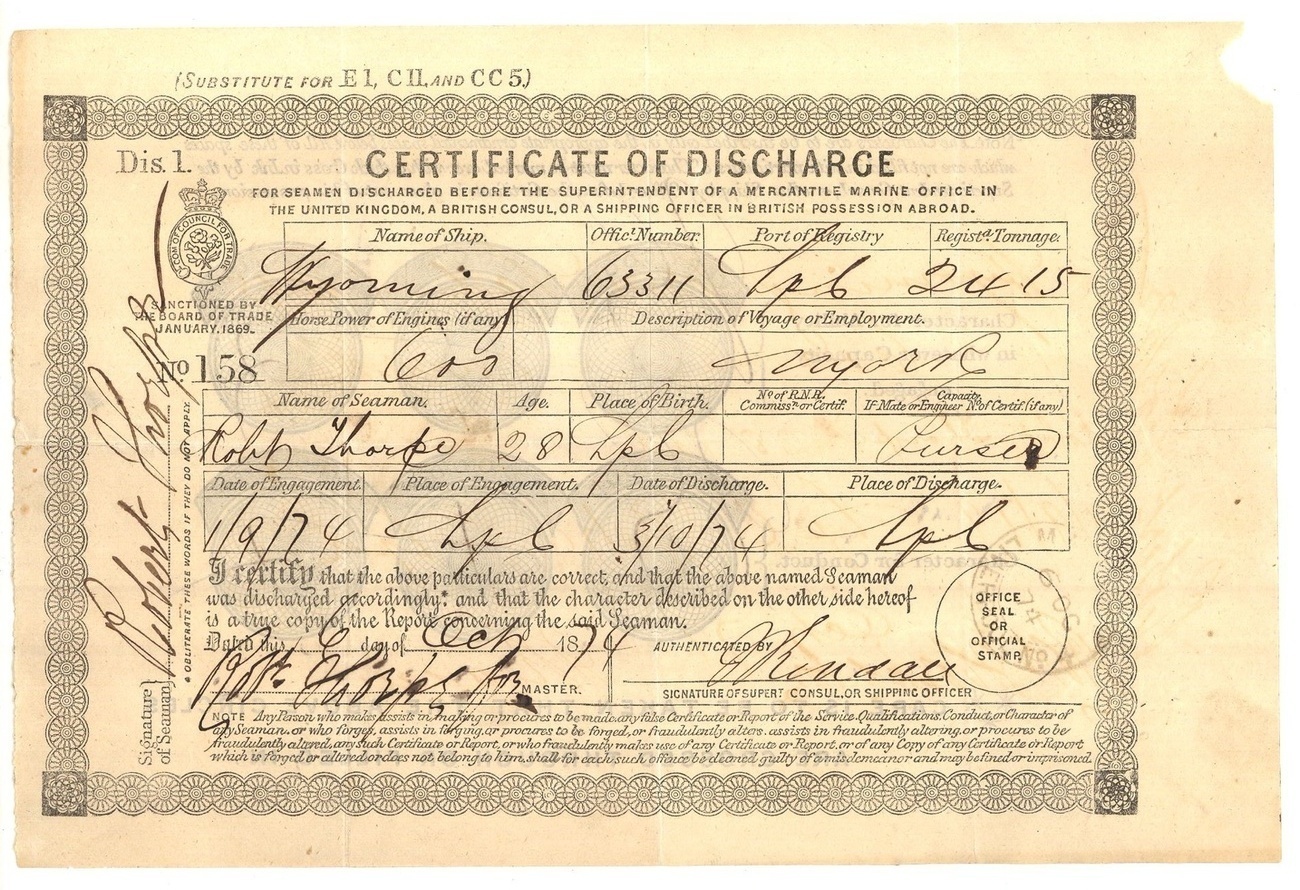 (SUBSTITUTE FOR E 1, C II, AND CC 5.)
Dis. 1.
CERTIFICATE OF DISCHARGE
FOR SEAMEN DISCHARGED BEFORE THE SUPERINTENDENT OF A MERCANTILE MARINE OFFICE IN
THE UNITED KINGDOM, A BRITISH CONSUL, OR A SHIPPING OFFICER IN BRITISH POSSESSION ABROAD.
COM OF COUNCIL FOR TRADE
SANCTIONED BY
THE BOARD OF TRADE
JANUARY. 1869.
No 158
Name of Ship. Offic.l Number. Port of Registry Regist.d Tonnage.
Wyoming 63311 Lpl 2415
Horse Power of Engines (if any) Description of Voyage or Employment.
600 NYork
Name of Seaman. Age. Place of Birth. No of R.N.R. Commiss.n or Certif. Capacity. If Mate or Engineer No of Certif. (if any)
Robt Thorpe 28 Lpl Purser
Date of Engagement. Place of Engagement. Date of Discharge. Place of Discharge.
1/9/74 Lpl 3/10/74 Lpl
I certify that the above particulars are correct, and that the above named Seaman
was discharged accordingly: and that the character described on the other side hereof
is a true copy of the Report concerning the said Seaman.
Dated this 6 day of Oct 1874
AUTHENTICATED BY
MASTER.
SIGNATURE OF SUPERT CONSUL, OR SHIPPING OFFICER
OFFICE
SEAL
OR
OFFICIAL
STAMP.
NOTE Any Person who makes, assists in making, or procures to be made, any false Certificate or Report of the Service. Qualifications, Conduct, or Character of
any Seaman. or who forges, assists in forging, or procures to be forged, or fraudulently alters. assists in fraudulently altering, or procures to be
fraudulently altered, any such Certificate or Report, or who fraudulently makes use of any Certificate or Report, or of any Copy of any Certificate or Report
which is forged or altered or does not belong to him, shall for each such offence be deemed guilty of a misdemeanor and may be fined or imprisoned.
Signature
of Seaman
Robert Thorpe
* OBLITERATE THESE WORDS IF THEY DO NOT APPLY.